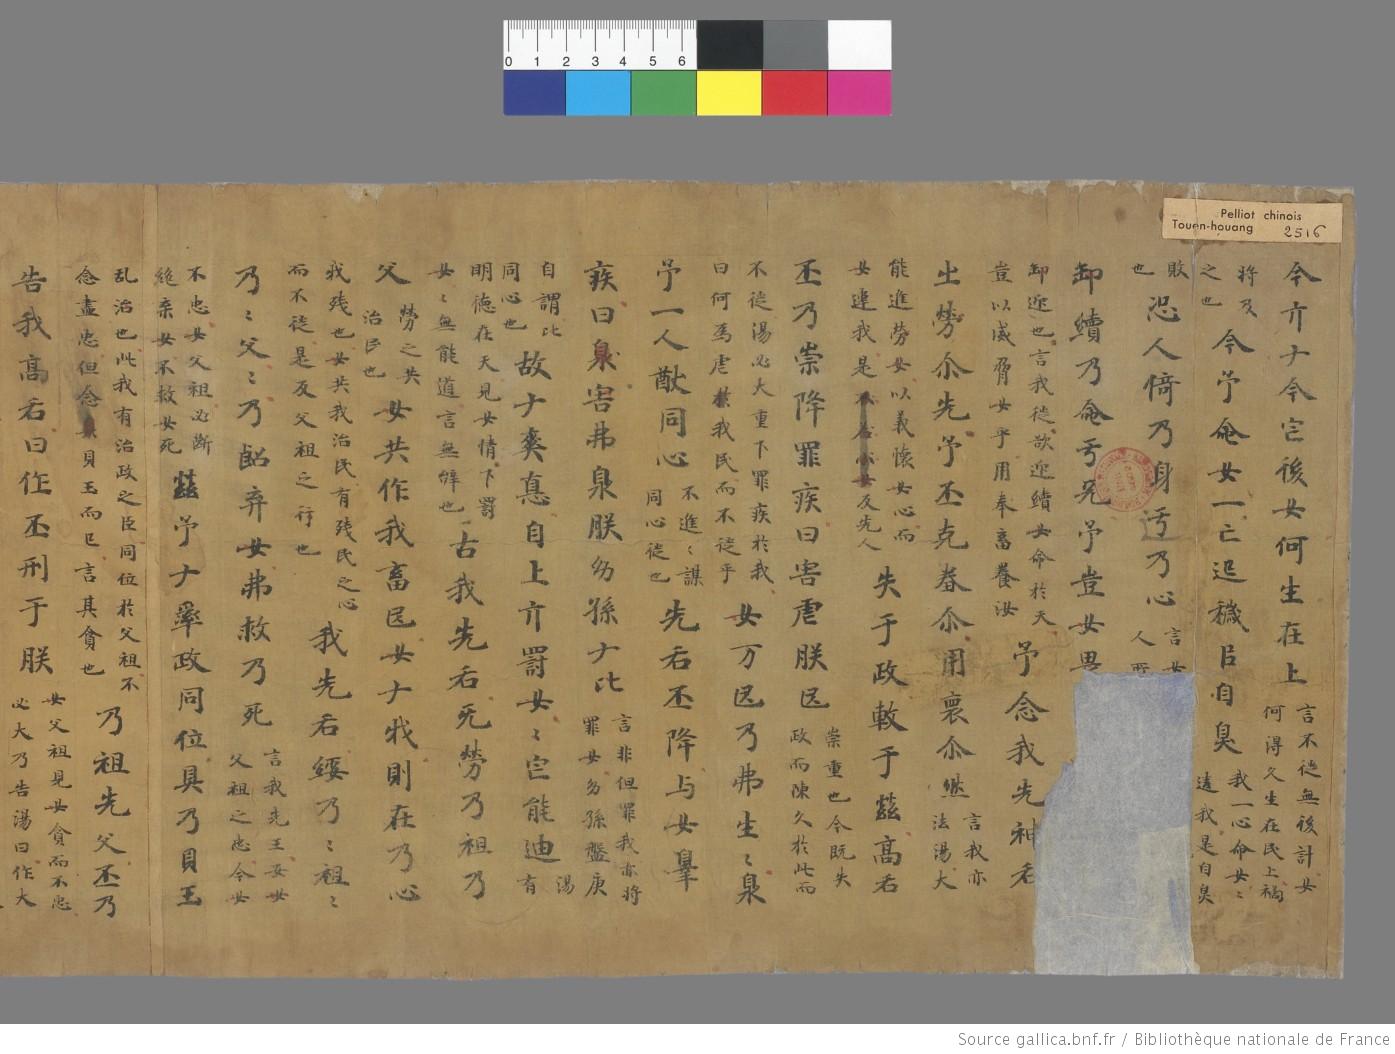 今亓ナ今它後女何生在上 言不徙無後計女
何得久生在民上禍
將及
之也 今予命女一亡起穢㠯自臭 我一心命女〻
違我是自臭
敗
也 恐人倚乃身迂乃心 言女
人
卸續乃命于兂予豈女畏
卸迎也言我徙欲迎續女命於天
豈以威脅女乎用奉畜養汝 予念我先神后
㞢勞尒先予丕克眷尒用褱尒然 言我亦
法湯大
能進勞女以義懷女心而
女違我是女反先人 失于政敶于茲高后
丕乃崇降罪疾曰害虐朕民 崇重也今既失
政而陳久於此而
不徙湯必大重下罪疾於我
曰何為虐我民而不徙乎 女万民乃弗生〻泉
予一人猷同心 不進〻謀
同心徙也 先后丕降与女辠
疾曰臮害弗泉朕幼孫ナ比 言非但罪我亦將
罪女幼孫盤庚
自謂比
同心也 故ナ爽悳自上亓罰女〻它能迪 湯
有
明德在天見女情下罰
女〻無能道言無辭也 古我先后死勞乃祖乃
父 勞之共
治民也 女共作我畜民女ナ戕則在乃心
戕殘也女共我治民有殘民之心
而不徙是反父祖之行也 我先后綏乃〻祖〻
乃〻父〻乃弃女弗救乃死 言我先王安女
父祖之忠今女
不忠女父祖必斷
絕棄女不救女死 茲予ナ率政同位具乃貝玉
乱治也此我有治政之臣同位於父祖不
念盡忠但念貝玉而已言其貪也 乃祖先父丕乃
告我高后曰作丕刑于朕 女父祖見女貪而不忠
必大乃告湯曰作大
Pelliot chinois
Touen-houang 2516
0 1 2 3 4 5 6
Source gallica.bnf.fr / Bibliothèque nationale de France